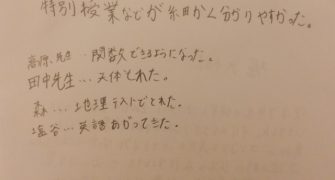 特別授業などが細かく分かりやすかった。
高源先生…関数できるようになった。
田中先生…文体とれた。
森…地理テストでとれた。
塩谷…英語あがってきた。